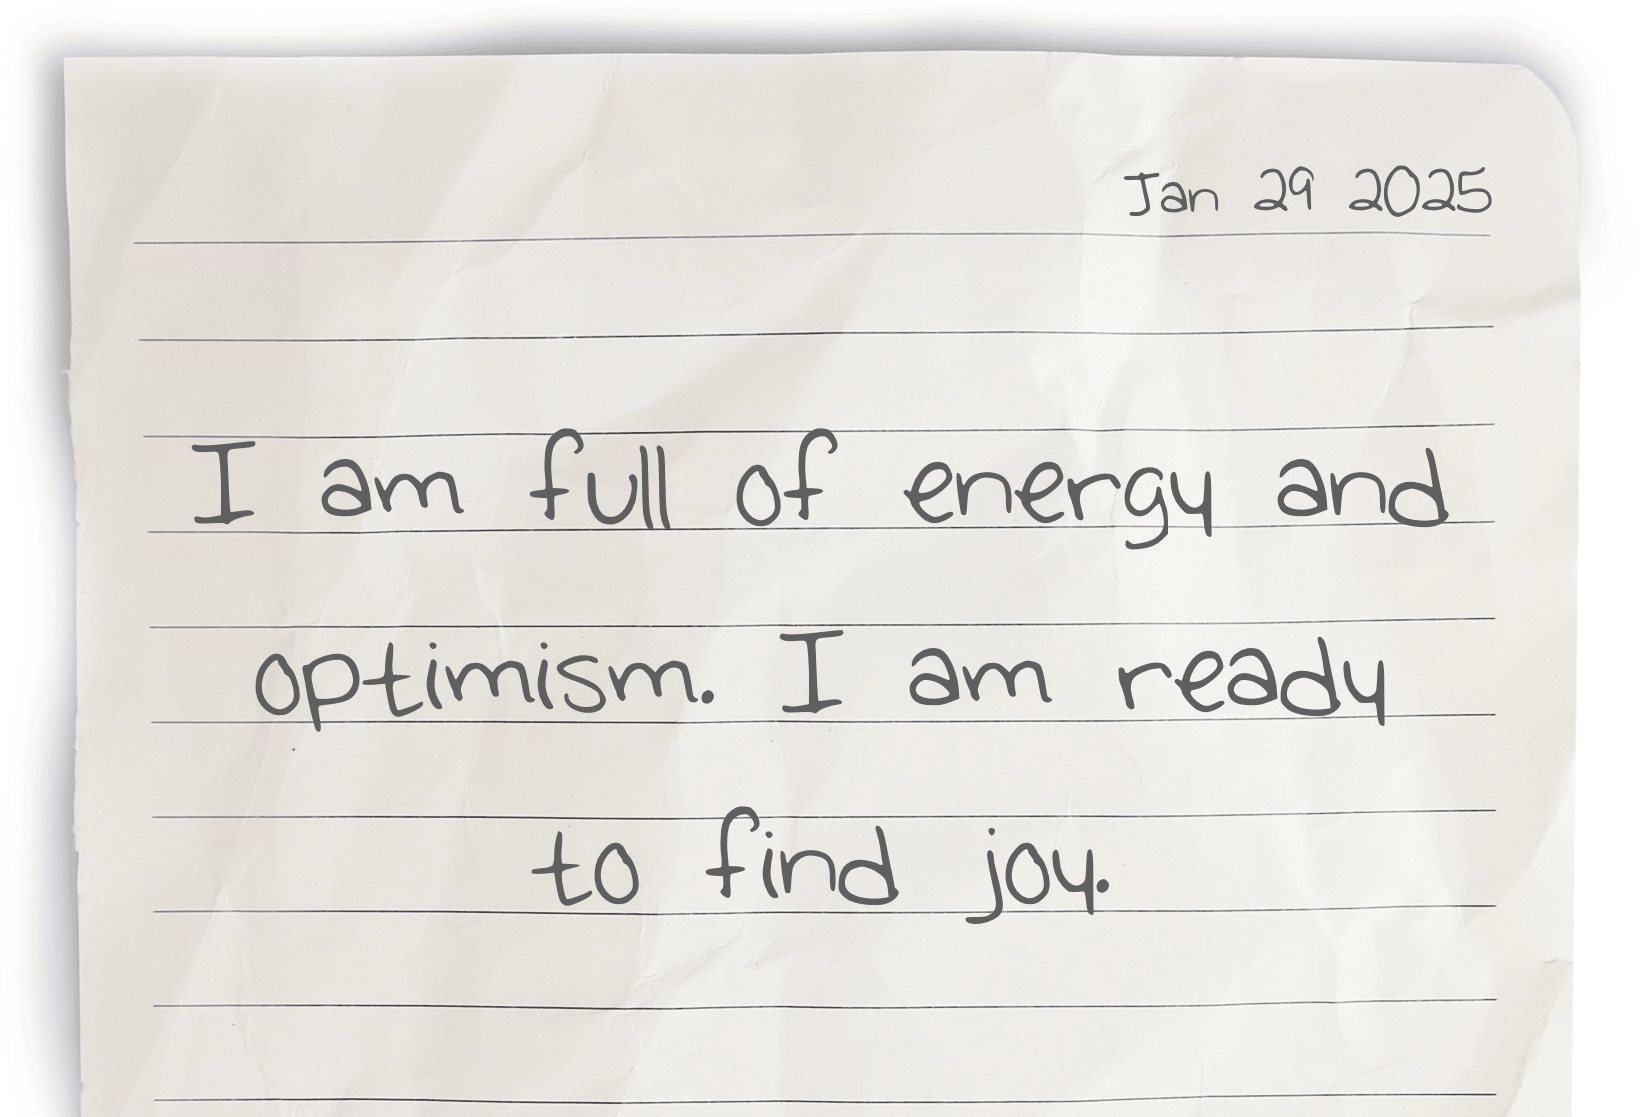 Jan 29 2025
I am full of energy and
optimism. I am ready
to find joy.